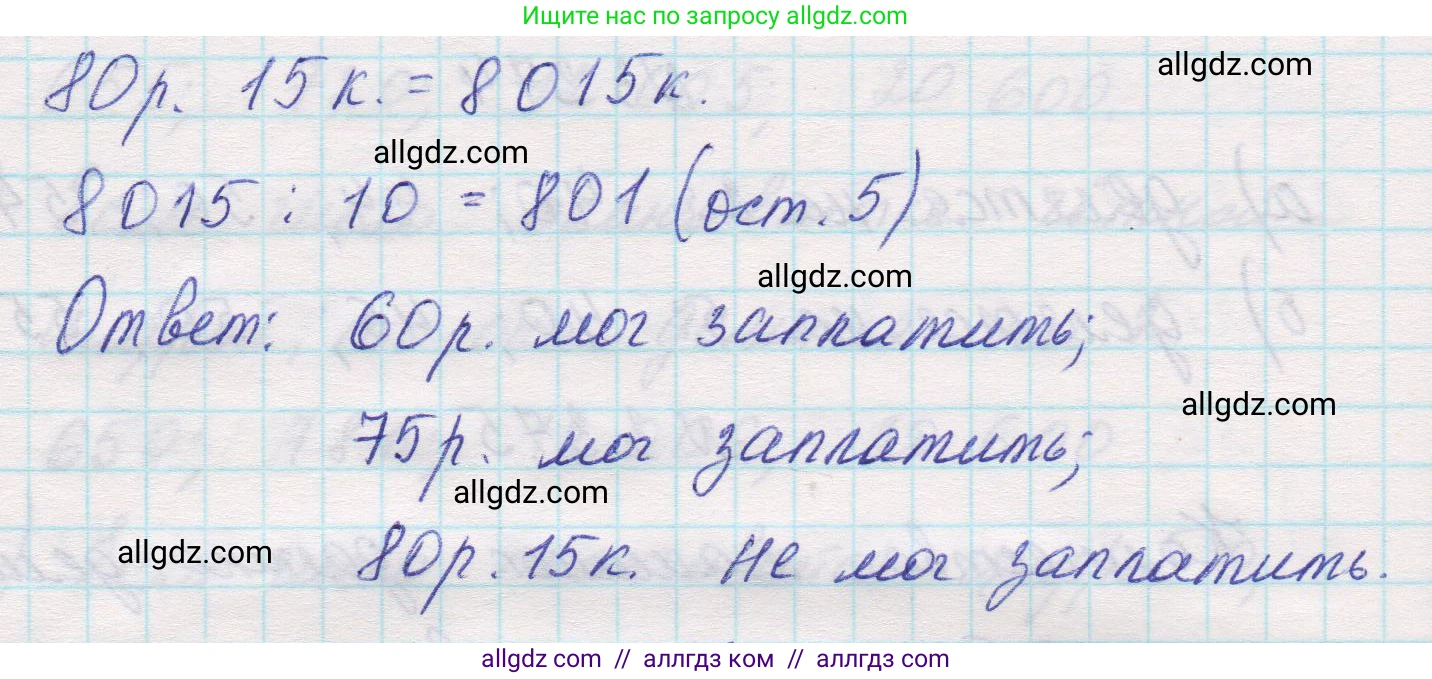 Ищите нас по запросу allgdz.com
80р. 15к. = 8015к.
allgdz.com
allgdz.com
8015 : 10 = 801 (ост. 5)
allgdz.com
Ответ: 60р. мог заплатить;
allgdz.com
75р. мог заплатить;
allgdz.com
allgdz.com
80р. 15к. Не мог заплатить.
allgdz.com // аллгдз ком // аллгдз com